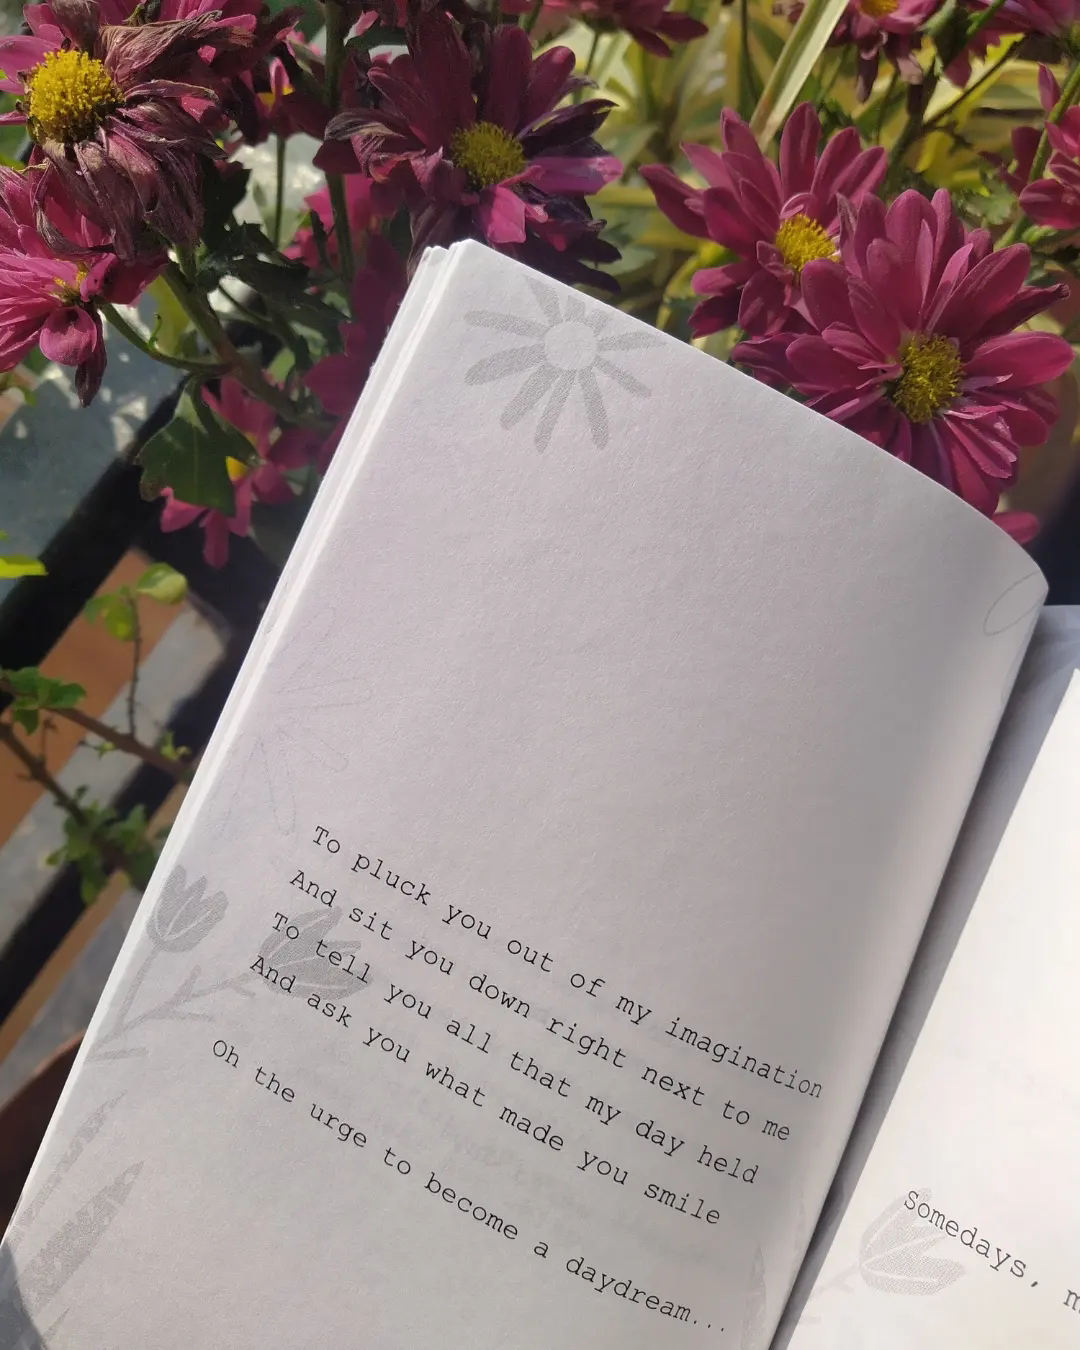 To pluck you out of my imagination
And sit you down right next to me
To tell you all that my day held
And ask you what made you smile
Oh the urge to become a daydream...
Somedays,